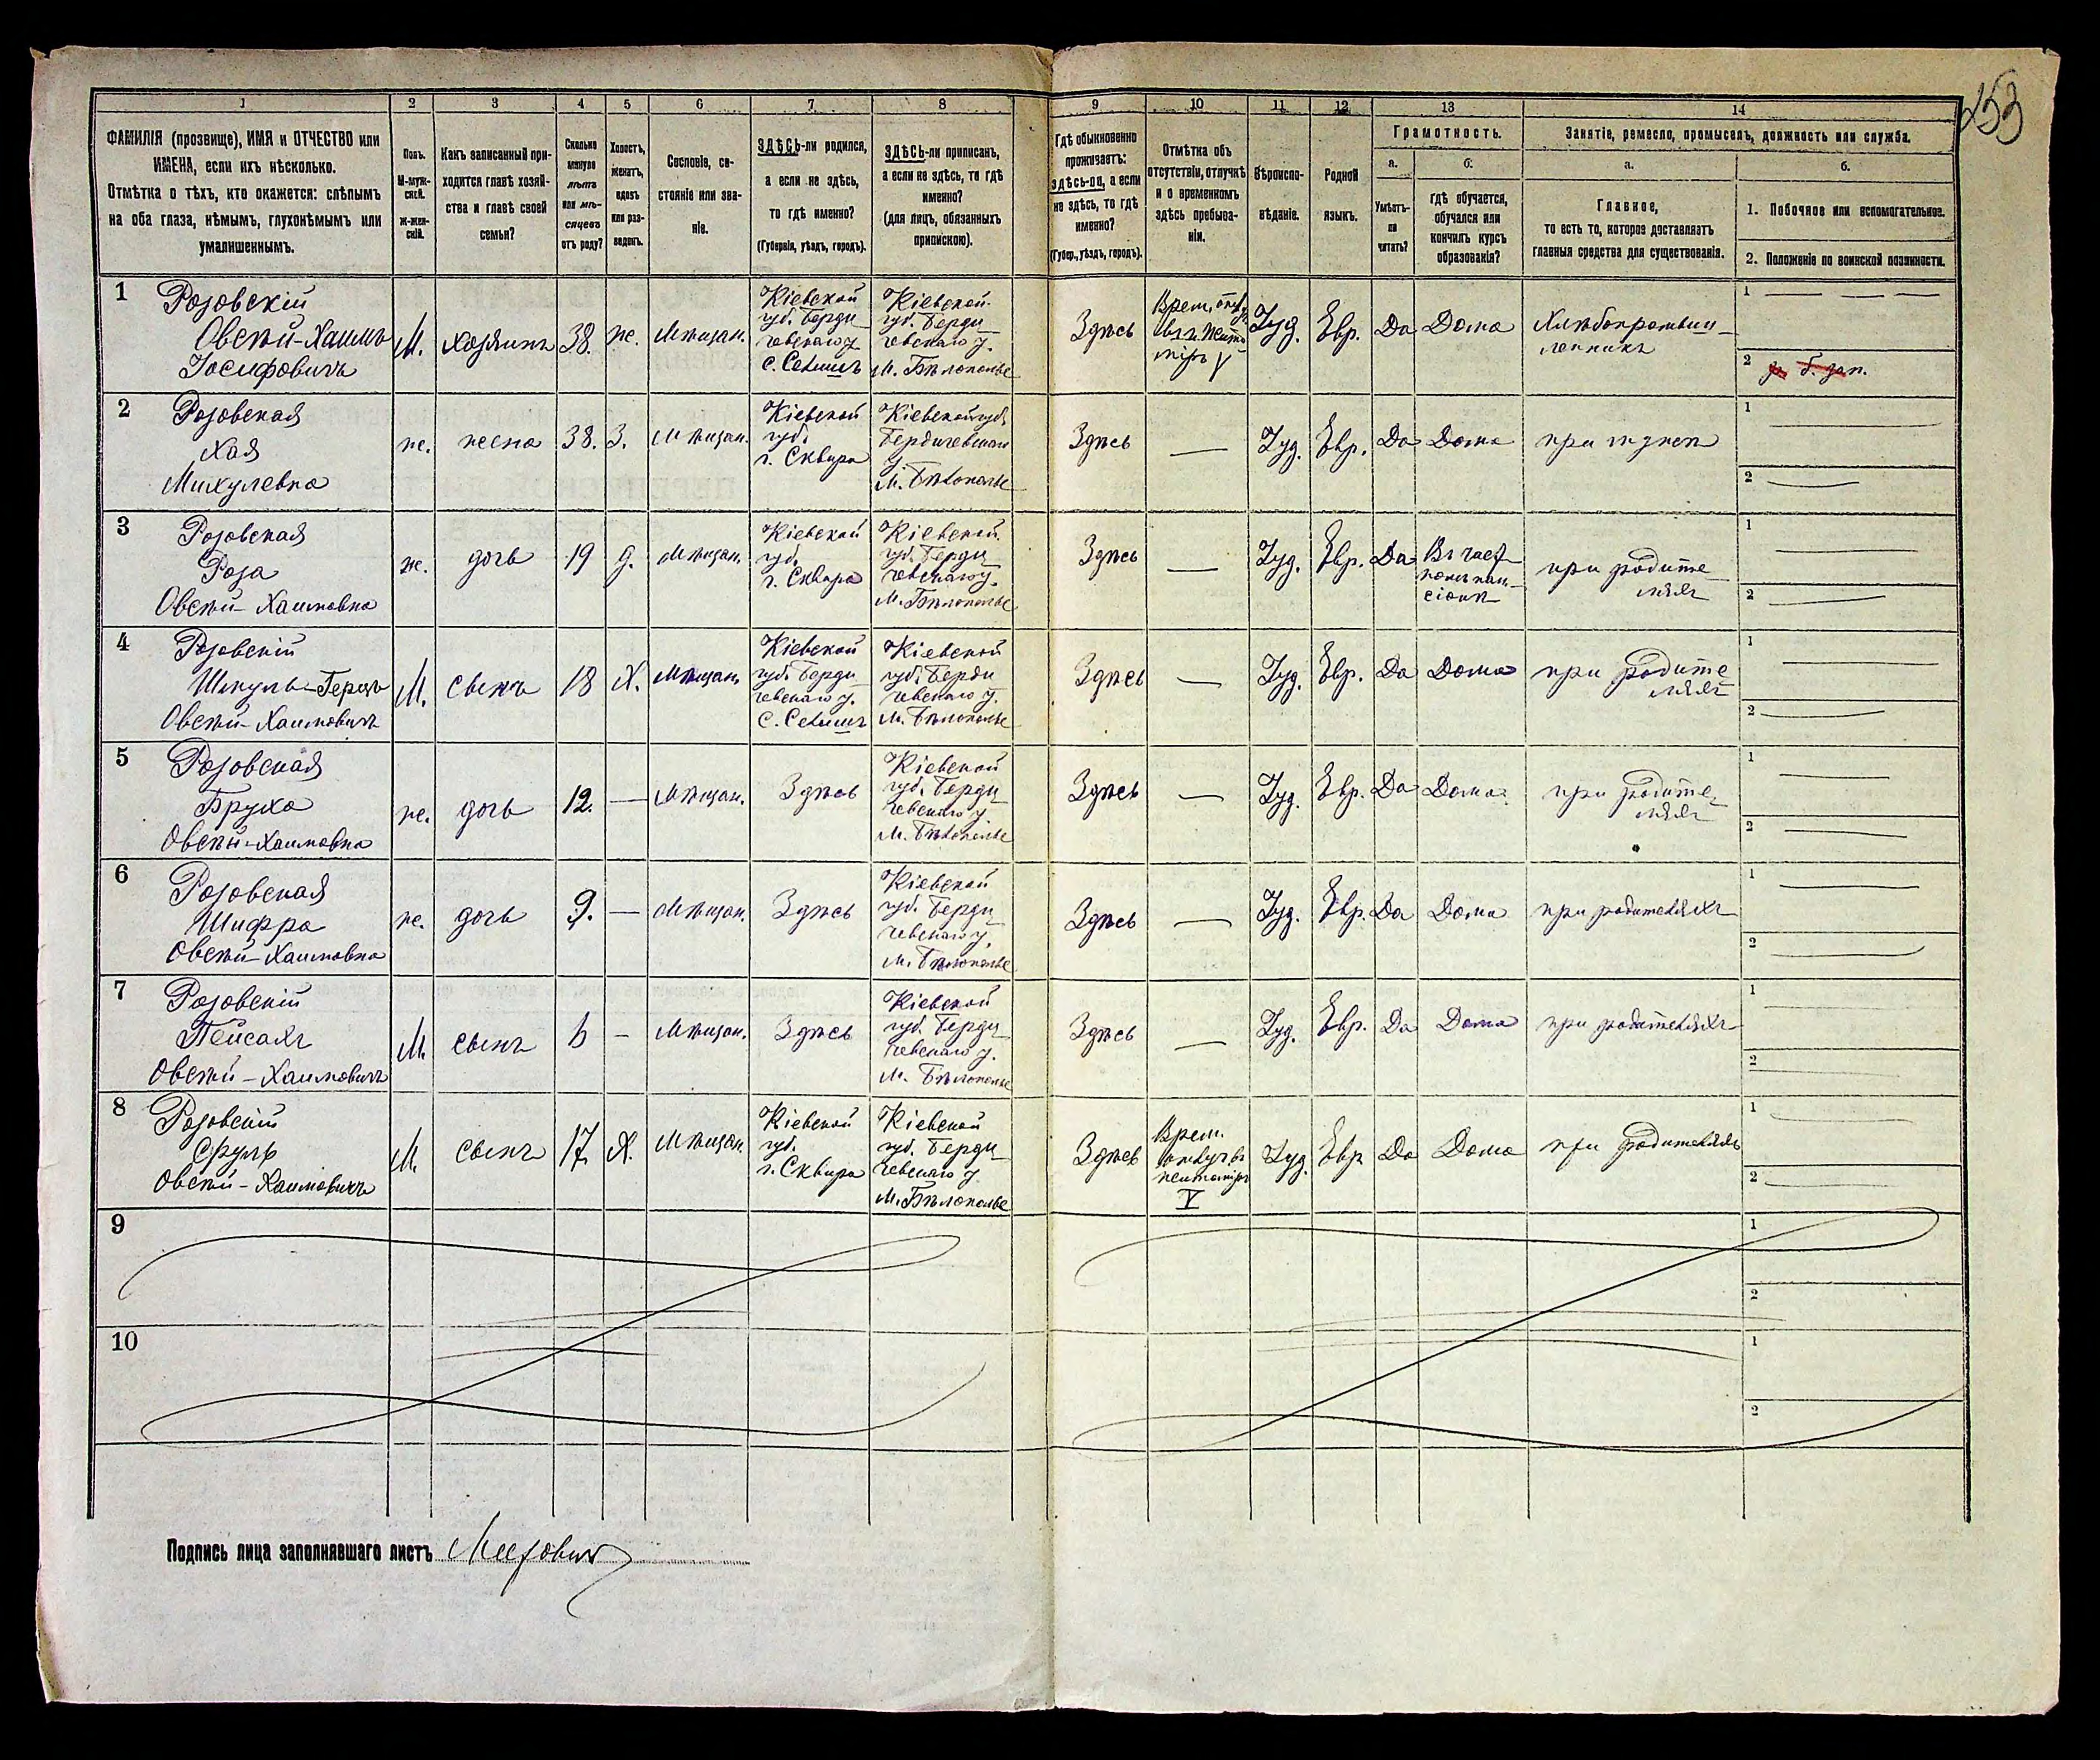 253
1 2 3 4 5 6 7 8 9 10 11 12 13 14
ФАМИЛІЯ (прозвище), ИМЯ и ОТЧЕСТВО или
ИМЕНА, если ихъ нѣсколько.
Отмѣтка о тѣхъ, кто окажется: слѣпымъ
на оба глаза, нѣмымъ, глухонѣмымъ или
умалишеннымъ.
Полъ.
М-муж-
ской.
Ж-жен-
скій.
Какъ записанный при-
ходится главѣ хозяй-
ства и главѣ своей
семьи?
Сколько
минуло
лѣтъ
или мѣ-
сяцевъ
отъ роду?
Холостъ,
женатъ,
вдовъ
или раз-
веденъ.
Сословіе, со-
стояніе или зва-
ніе.
ЗДѢСЬ-ли родился,
а если не здѣсь,
то гдѣ именно?
(Губернія, уѣздъ, городъ).
ЗДѢСЬ-ли приписанъ,
а если не здѣсь, то гдѣ
именно?
(для лицъ, обязанныхъ
припискою).
Гдѣ обыкновенно
проживаетъ:
здѣсь-ли, а если
не здѣсь, то гдѣ
именно?
(Губер., уѣздъ, городъ).
Отмѣтка объ
отсутствіи, отлучкѣ
и о временномъ
здѣсь пребыва-
ніи.
Вѣроиспо-
вѣданіе.
Родной
языкъ.
Грамотность.
а.
Умѣетъ-
ли
читать?
б.
гдѣ обучается,
обучался или
кончилъ курсъ
образованія?
Занятіе, ремесло, промыселъ, должность или служба.
а.
Главное,
то есть то, которое доставляетъ
главныя средства для существованія.
б.
1. Побочное или вспомогательное.
2. Положеніе по воинской повинности.
1
Розовскій
Овсѣй-Хаимъ
Іосифовичъ
М.
хозяинъ
38.
же.
Мѣщан.
Кіевской
губ. Берди
чевскаго у.
с. Селишъ
Кіевской
губ. Берди
чевскаго у.
м. Бѣлополье
Здѣсь
Врем.
V
Іуд.
Евр.
Да
Дома
Хлѣбопромыш
ленникъ
1
2
2
Розовская
Хая
Михулевна
же.
жена
38.
З.
Мѣщан.
Кіевской
губ.
г. Сквира
Кіевской губ.
Бердичевскаго
у.
м. Бѣлополье
Здѣсь
Іуд.
Евр.
Да
Дома
при мужѣ
1
2
3
Розовская
Роза
Овсѣй-Хаимовна
же.
дочь
19
д.
Мѣщан.
Кіевской
губ.
г. Сквира
Кіевской
губ. Берди
чевскаго у.
м. Бѣлополье
Здѣсь
Іуд.
Евр.
Да
Въ част
номъ пан-
сіонѣ
при родите
ляхъ
1
2
4
Розовскій
Шмуль-Герцъ
Овсѣй-Хаимовичъ
М.
сынъ
18
Х.
Мѣщан.
Кіевской
губ. Берди
чевскаго у.
с. Селишъ
Кіевской
губ. Берди
чевскаго у.
м. Бѣлополье
Здѣсь
Іуд.
Евр.
Да
Дома
при родите
ляхъ
1
2
5
Розовская
Бруха
Овсѣй-Хаимовна
же.
дочь
12.
Мѣщан.
Здѣсь
Кіевской
губ. Берди
чевскаго у.
м. Бѣлополье
Здѣсь
Іуд.
Евр.
Да
Дома
при родите
ляхъ
1
2
6
Розовская
Шифра
Овсѣй-Хаимовна
же.
дочь
9.
Мѣщан.
Здѣсь
Кіевской
губ. Берди
чевскаго у.
м. Бѣлополье
Здѣсь
Іуд.
Евр.
Да
Дома
при родителяхъ
1
2
7
Розовскій
Пейсахъ
Овсѣй-Хаимовичъ
М.
сынъ
6
Мѣщан.
Здѣсь
Кіевской
губ. Берди
чевскаго у.
м. Бѣлополье
Здѣсь
Іуд.
Евр.
Да
Дома
при родителяхъ
1
2
8
Розовскій
Сруль
Овсѣй-Хаимовичъ
М.
сынъ
17.
Х.
Мѣщан.
Кіевской
губ.
г. Сквира
Кіевской
губ. Берди
чевскаго у.
м. Бѣлополье
Здѣсь
Врем.
V
Іуд.
Евр
Да
Дома
при родителяхъ
1
2
9
1
2
10
1
2
Подпись лица заполнявшаго листъ